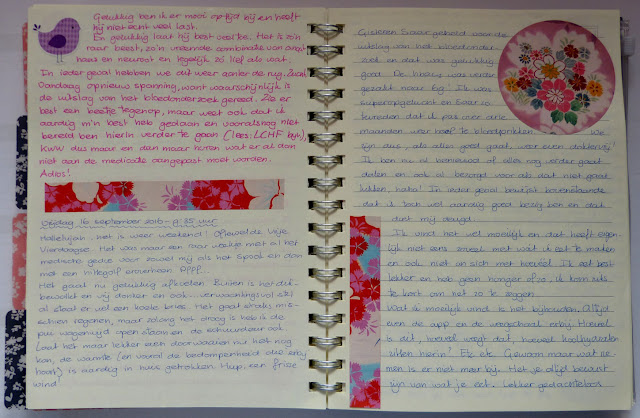 Gelukkig ben ik er mooi op tijd bij en heeft
hij niet echt veel last.
En gelukkig laat hij best veel toe. Het is zo'n
raar beest, zo'n vreemde combinatie van angst
haas en neuroot en tegelijk zo lief als wat.
In ieder geval hebben we dit weer achter de rug.
Vandaag opnieuw spanning, want waarschijnlijk is
de uitslag van het bloedonderzoek gereed. Zie er
best een beetje tegenop, maar weet ook dat ik
aardig m'n best heb gedaan en voorlopig niet
bereid ben hierin verder te gaan (lees: LCHF bijv.),
KWW dus maar en dan maar horen wat er al dan
niet aan de medicatie aangepast moet worden.
Adios!
Vrijdag 16 september 2016 - 9.35 uur
Hallelujah. Het is weer weekend! Oftewel de vrije
Vierdaagse. Het was maar een raar weekje met al het
medische gedoe voor zowel mij als het Spook en dan
met een hittegolf eroverheen. Pffff..
Het gaat nu gelukkig afkoelen. Buiten is het dik-
bewolkt en vrij donker en ook... verwachtingsvol stil
al staat er wel een koele bries. Het gaat straks mis-
schien regenen, maar zolang het droog is heb ik de
pui wagenwijd open staan en de achterdeur ook.
Laat het maar lekker even doorwaaien nu het nog
kan, de warmte (en vooral de bedomptheid die erbij
hoort) is aardig in huis getrokken. Hup, een frisse
wind!
Gisteren 5 uur gebeld voor de
uitslag van het bloedonder-
zoek en dat was gelukkig
goed. De HbA1c was verder
gezakt naar 69. Ik was
superopgelucht en 5 uur
tevreden dat ik pas over drie
maanden weer hoef te bloedprikken. We
zijn dus, als alles goed gaat, weer even onderweg!
Ik ben nu al benieuwd of alles nog verder gaat
dalen en ook al bezorgd voor als dat niet gaat
lukken, haha! In ieder geval bewijst bovenstaande
dat ik toch wel aardig goed bezig ben en dat
doet mij deugd.
Ik vind het wel moeilijk en dat heeft eigen-
lijk niet eens zoveel met wat ik eet te maken
en ook niet an sich met hoeveel. Ik eet best
lekker en heb geen honger ofzo. Ik kom niets
te kort om het zo te zeggen.
Wat ik moeilijk vind is het bijhouden. Altijd
even de app en de weegschaal erbij. Hoeveel
is dit, hoeveel weegt dat, hoeveel koolhydraten
zitten hierin? Etc etc. Gewoon maar wat ne-
men is er niet meer bij. Het je altijd bewust
zijn van wat je eet. Lekker gedachteloos